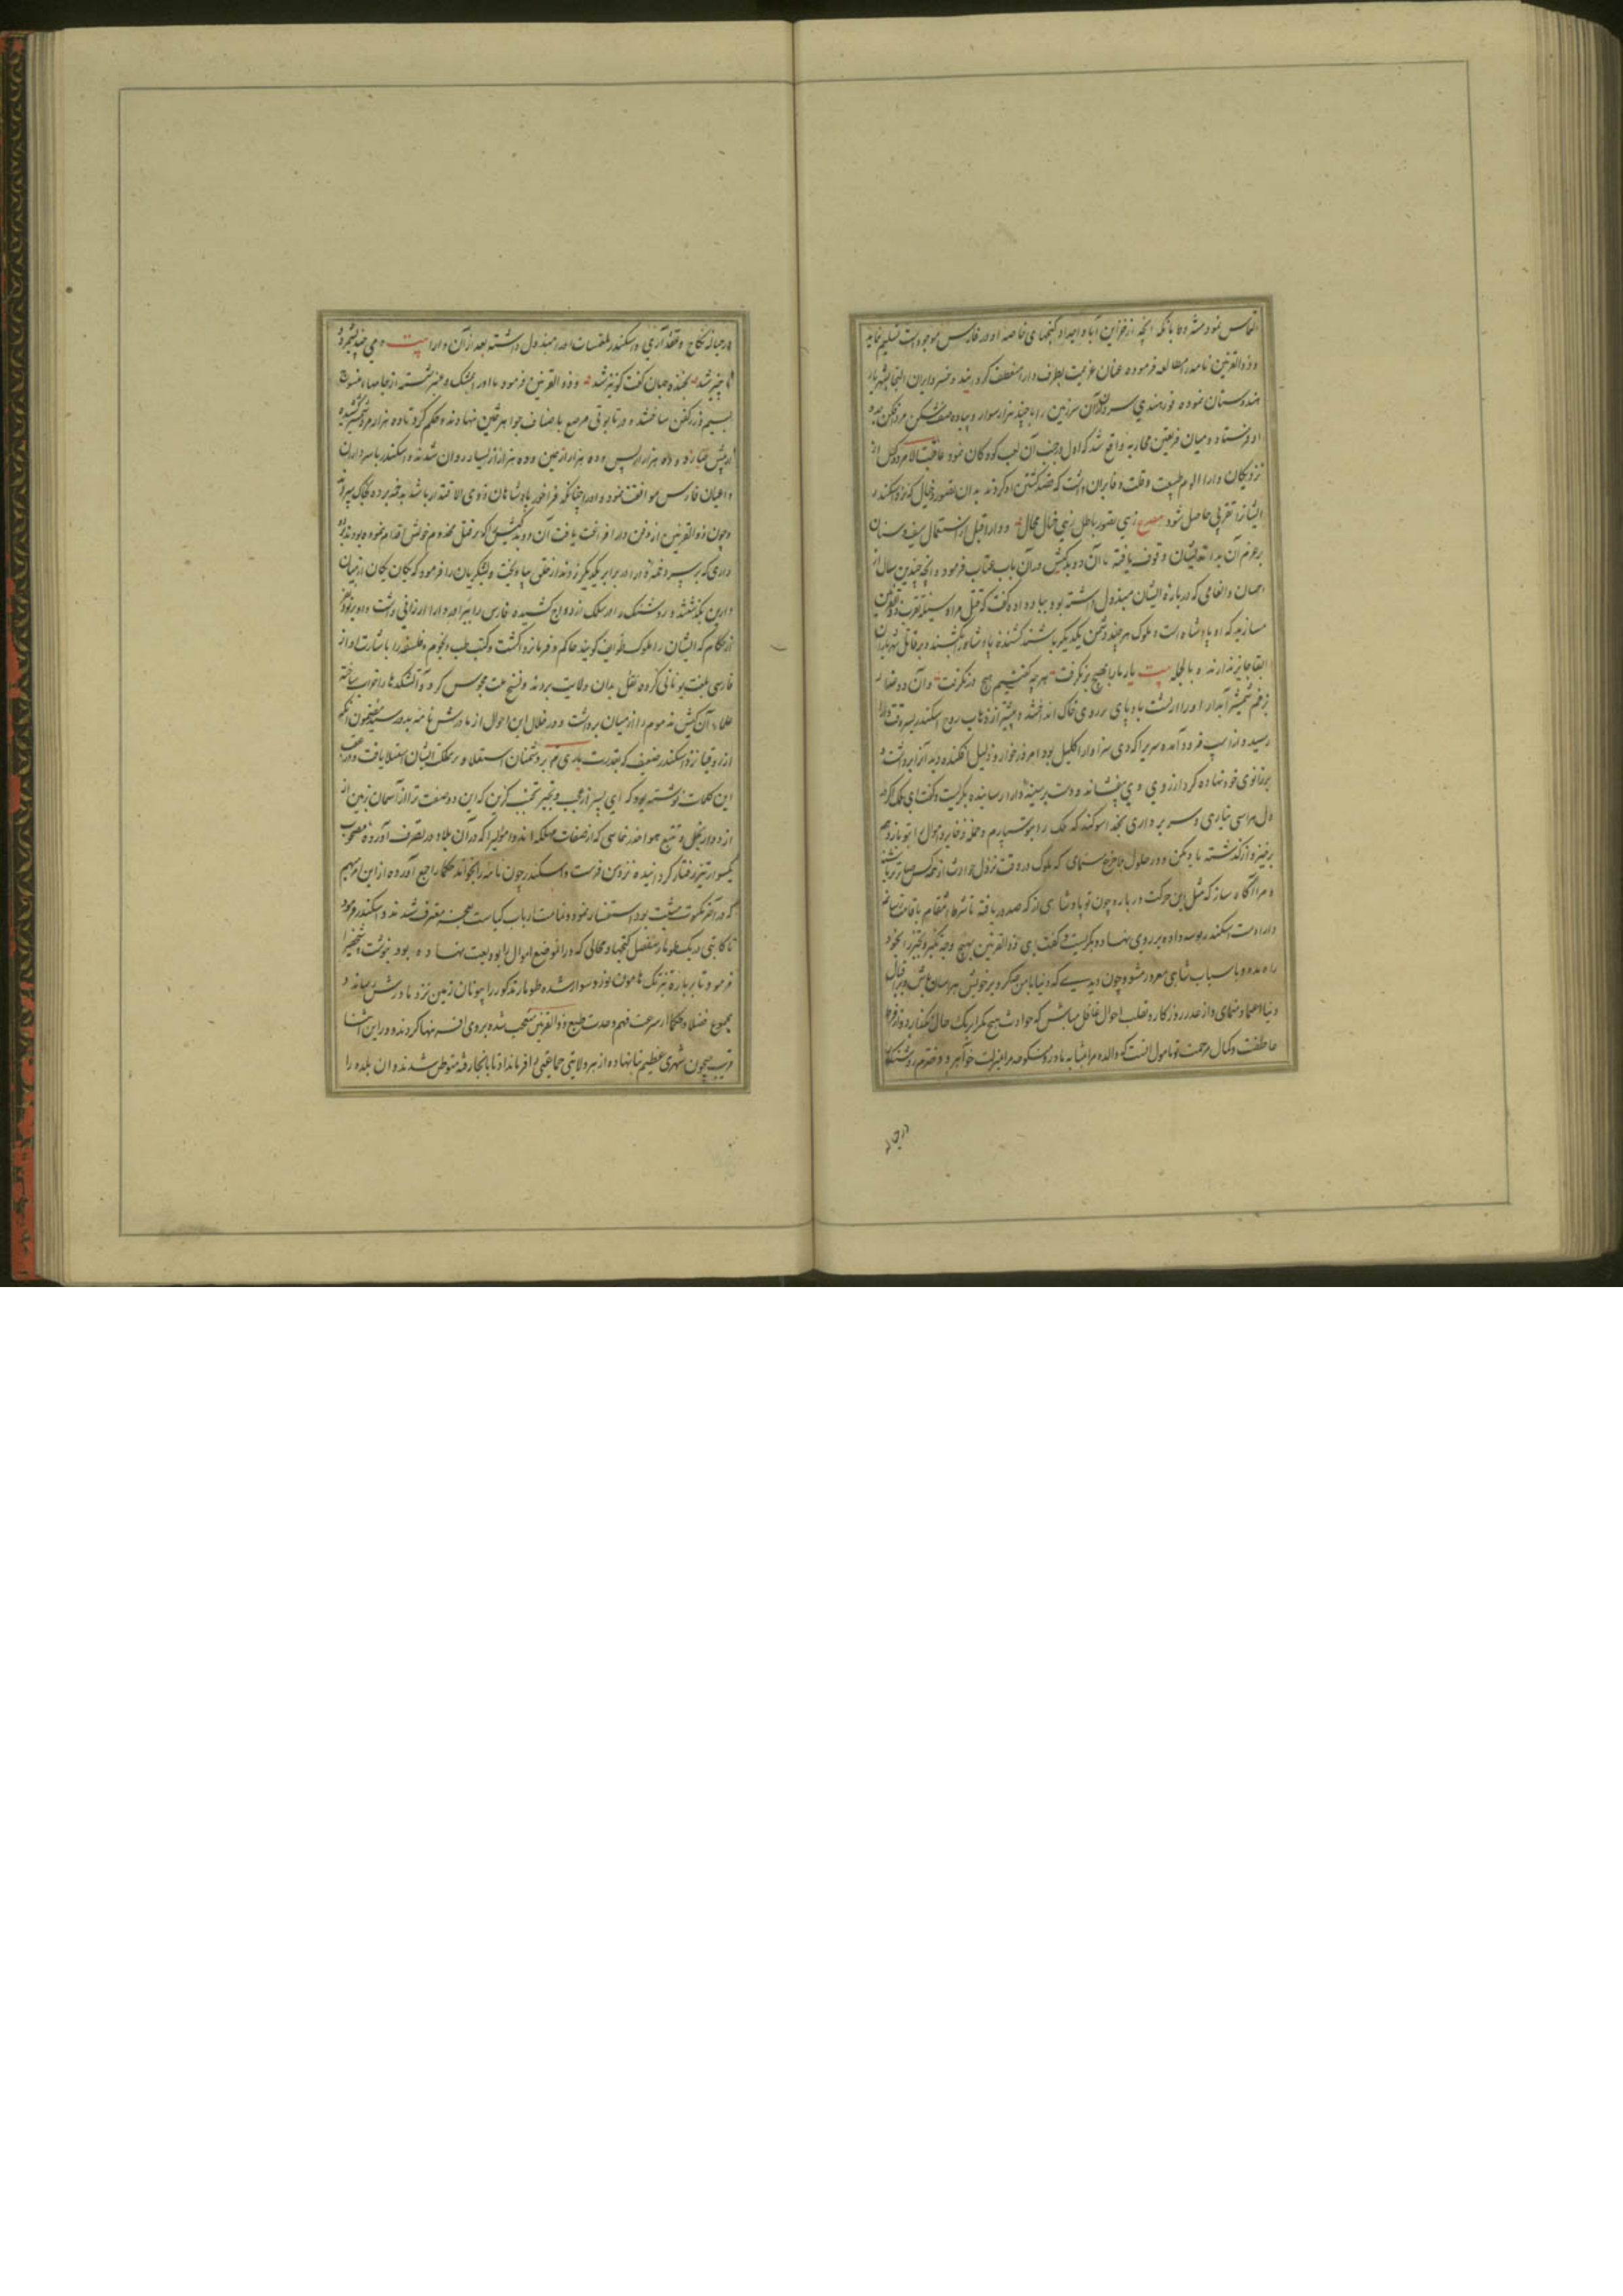 التماس نمود مشروط بآنکه آنچه از خزاین آبا و اجداد و گنجهای خاصه او در فارس موجود است تسلیم نماید
و ذوالقرنین نامه را مطالعه فرموده عنان عزیمت بطرف دارا منعطف گردانید و خسرو ایران التجا بشهریار
هندوستان نموده فور هندی سروران آن سرزمین را با چند هزار سوار و پیاده صف شکن مرد افکن بمدد
او فرستاد و میان فریقین محاربه واقع شد که اول و رجف آن لعب کودکان نمود عاقبت الامر دو کس از
نزدیکان دارا الوم طبیعت و قلت وفا بران داشت که قصد کشتن او کردند بدان تصور و خیال که نزد اسکندر
ایشانرا تقربی حاصل شود مصرع زهی تصور باطل زهی خیال محال و دارا قبل از استعمال سیف و سنان
بر عزم آن بد اندیشان وقوف یافته با آن دو بدکیش در آن باب عتاب فرمود و آنچه چندین سال از
احسان و انعامی که درباره ایشان مبذول داشته بود بیاد داده گفت که قتل مرا وسیله تقرب ذوالقرنین
مسازید که او پادشاه است و ملوک هر چند دشمن یکدیگر باشند کشنده پادشاه را بکشند و بر قاتل شهریاران
ابقا جایز ندارند و بالجمله بیت یار ما را هیچ بر نگرفت هر چه گفتیم هیچ در نگرفت و آن دو غدار
بزخم شمشیر آبدار او را از پشت بادپای بر روی خاک انداختند و پیشتر از ذهاب روح اسکندر بسر وقت دارا
رسید و از اسپ فرود آمده سریرا که دی سزاوار اکلیل بود امروز خوار و ذلیل افکنده دید آنرا برداشت و
بر زانوی خود نهاده گرد از روی وی بیفشاند و دست بر سینه دارا رسانیده بگریست و گفت ای ملک اگر
دل هراسی نیاری و سر برداری بخدا سوگند که ملک را بتو بسپارم و جمله ذخایر و اموال را بتو باز دهم
برخیز و از گذشته یاد مکن و در حلول مخرج سمای که ملوک در وقت نزول حوادث از همه کس صابرتر باشند
و مرا آگاه ساز که مثل این حرکت درباره چون تو پادشاهی از که صدور یافته تا شرط انتقام باقامت رسانم
دارا دست اسکندر بوسه داده بر روی نهاد و بگریست و گفت ای ذوالقرنین بهیچ وجه تکبر و تجبر را بخود
راه مده و باسباب شاهی مغرور مشو و چون دیدی که دنیا با من چه کرد بر خویش هراسان باش و بر اقبال
دنیا اعتماد منمای و از غدر روزگار و تقلب احوال غافل مباش که حوادث هیچ کس را بر یک حال نگذارد و از فرط
عاطفت و کمال مرحمت تو مامول آنست که والده مرا بمثابه مادر و منکوحه مرا بمنزلت خواهر و دخترم روشنک را
در حباله
در حباله نکاح و عقد آری و اسکندر ملتمسات او را مبذول داشته بعد از آن دارا بیت
ناچیز شد بخنده جهان گفت کو نیز شد و ذوالقرنین فرمود تا او را بمشک و عنبر شسته از جامهاء منسوج
بسیم و زر کفن ساختند و در تابوتی مرصع باصناف جواهر ثمین نهادند و حکم کرد تا ده هزار مرد شمشیر کشیده
از پیش جنازه و ده هزار از پس و ده هزار از یمین و ده هزار از یسار روان شدند و اسکندر با سرداران
و اعیان فارس موافقت نمود و او را چنانکه فراخور پادشاهان ذوی الاقتدار باشد بدخمه برده بخاک سپردند
و چون ذوالقرنین از دفن دارا فراغت یافت آن دو بدکیش را که بر قتل مخدوم خویش اقدام نموده بودند بر
داری که بر سر دخمه دارا در برابر یکدیگر زدند از حلق بیاویخت و لشکریان را فرمود که یگان یگان از میان
دارین بگذشتند و روشنک را در سلک ازدواج کشیده فارس را ببرادر دارا ارزانی داشت و او بر نود نفر
از حکام که ایشان را ملوک طوایف گویند حاکم و فرمانروا گشت و کتب طب و نجوم و فلسفه را باشارت او از
فارسی بلغت یونانی کرده نقل بدان ولایت بردند و نسخ ملت مجوس کرد و آتشکدها را خراب ساخته
علماء آن کیش مذموم را از میان برداشت و در خلال این احوال از مادرش نامه بدو رسید مضمون آنکه
از روقیا نزد اسکندر ضعیف که بقدرت باری بر دشمنان استعلا و بر مملکت ایشان استیلا یافت و در عقب
این کلمات نوشته بود که ای پسر از عجب و تجبر تجنب گزین که این دو صفت ترا از آسمان بزمین
اندازد و از بخل و تتبع هوا حذر نما که از صفات مهلکه اند و اموالیرا که در آن بلاد در تصرف آورده مصحوب
یکسوار تیز رفتار گردانیده نزد من فرست و اسکندر چون نامه را بخواند حکما را جمع آورده از این امر مبهم
که در آخر مکتوب مثبت بود استفسار نمود و تمامت ارباب کیاست بعجز معترف شدند و اسکندر فرمود
تا کاتبی در یک طومار مفصل گنجها و محالی که در آن موضع اموال را بودیعت نهاده بود بنوشت و شخصی را
فرمود تا بر باره تیزتک هامون نورد سوار شده طومار مذکور را بیونان زمین نزد مادرش رساند و
مجموع فضلا و حکما از سرعت فهم و حدت طبع ذوالقرنین متعجب شده بر وی آفرینها کردند و در این اثنا
قریب جیحون شهری عظیم بنا نهاده از هر ولایتی جماعتی را فرمان داد تا بآنجا رفته متوطن شدند و آن بلده را